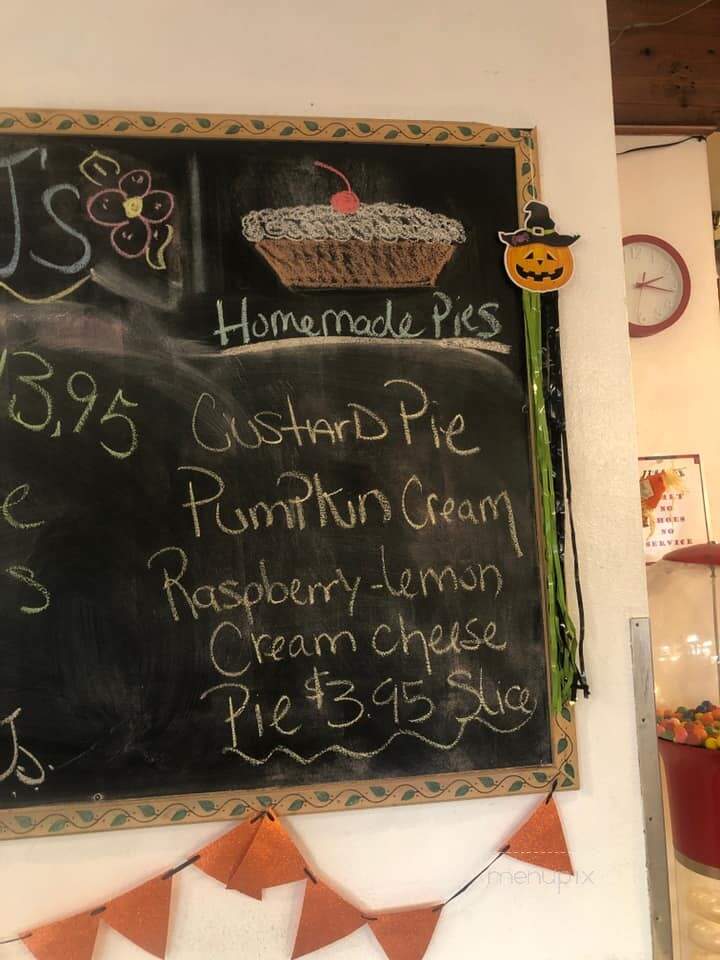 J's
Homemade Pies
3.95
Custard Pie
Pumpkin Cream
e
Raspberry-lemon
s
Cream cheese
Pie $3.95 Slice
s.
NO
SERVICE
menupix